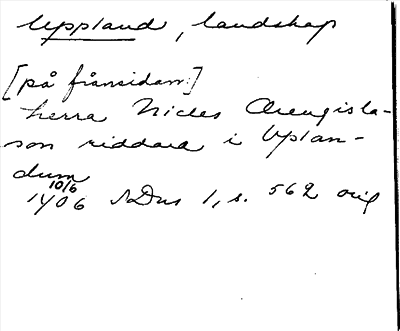 Uppland, landskap
[på frånsidan:]
herra Nicles Ærengisla-
son riddara i Vplan-
dum
10/6
1406 SDns 1, s. 562 orig